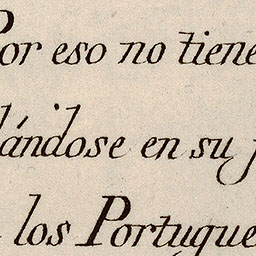 Por eso no tiene
ándose en su
los Portugue